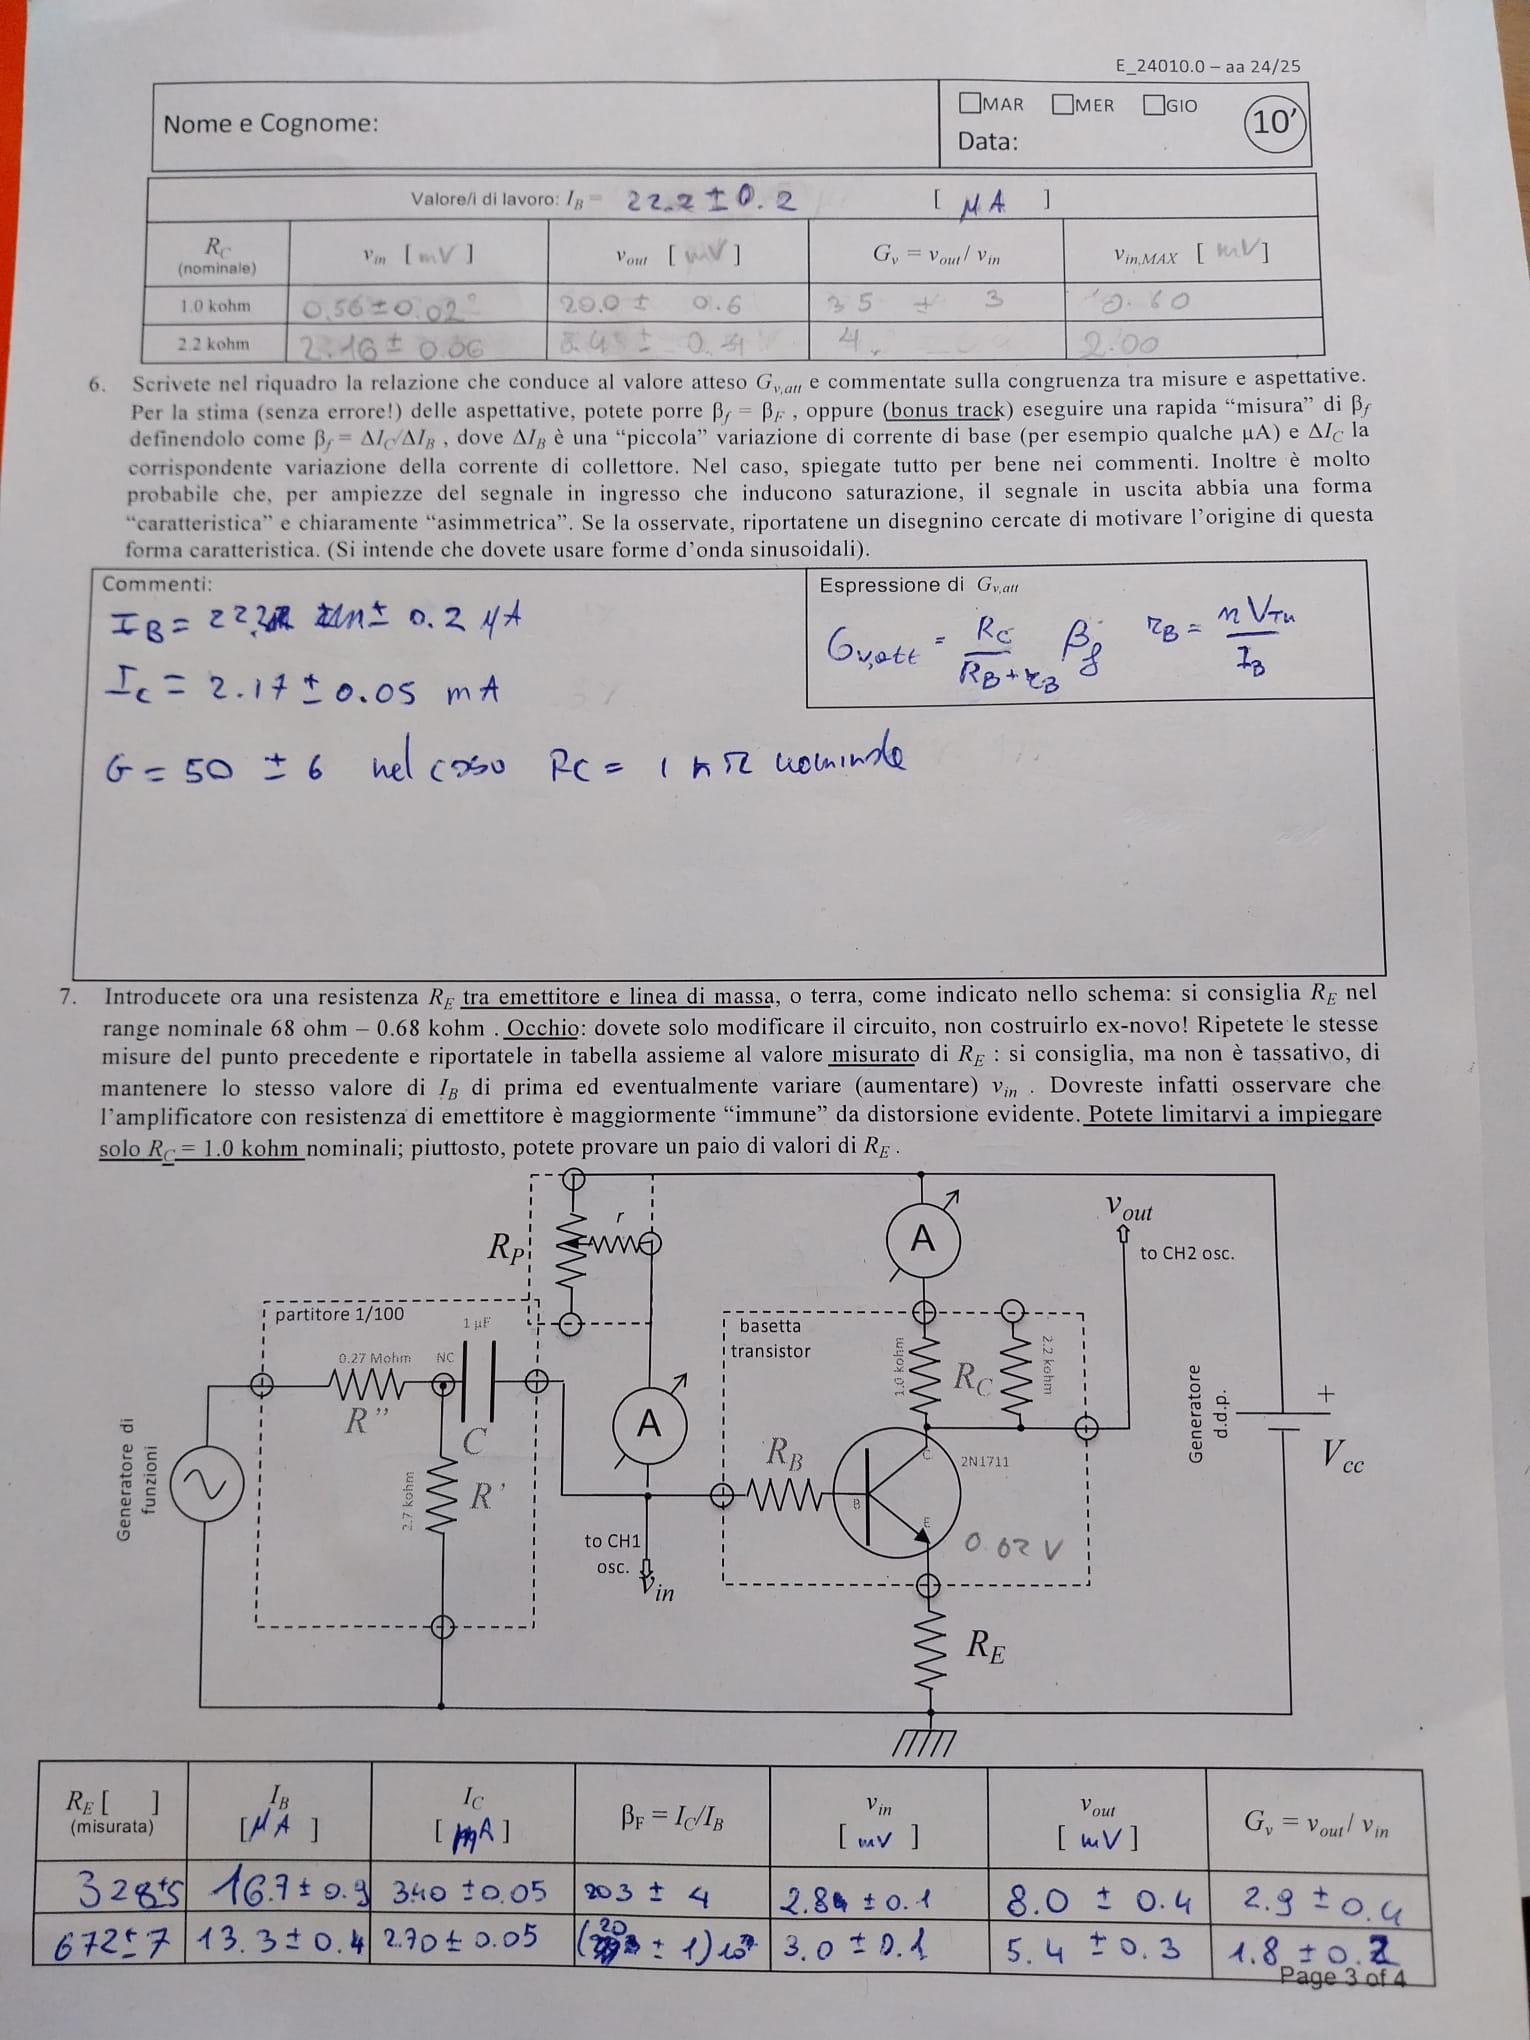 E_24010.0 – aa 24/25
Nome e Cognome:
MAR MER GIO
Data:
10’
Valore/i di lavoro: IB = 22.2 ± 0.2 [ μA ]
RC (nominale)
vin [ mV ]
vout [ mV ]
Gv = vout/ vin
vin,MAX [ mV ]
1.0 kohm 0.56 ± 0.02 20.0 ± 0.6 35 ± 3 0.60
2.2 kohm 2.16 ± 0.06 4. 2.00
6. Scrivete nel riquadro la relazione che conduce al valore atteso Gv,att e commentate sulla congruenza tra misure e aspettative.
Per la stima (senza errore!) delle aspettative, potete porre βf = βF , oppure (bonus track) eseguire una rapida “misura” di βf
definendolo come βf = ΔIC/ΔIB , dove ΔIB è una “piccola” variazione di corrente di base (per esempio qualche μA) e ΔIC la
corrispondente variazione della corrente di collettore. Nel caso, spiegate tutto per bene nei commenti. Inoltre è molto
probabile che, per ampiezze del segnale in ingresso che inducono saturazione, il segnale in uscita abbia una forma
“caratteristica” e chiaramente “asimmetrica”. Se la osservate, riportatene un disegnino cercate di motivare l’origine di questa
forma caratteristica. (Si intende che dovete usare forme d’onda sinusoidali).
Commenti:
Espressione di Gv,att
Gv,att = RC / (RB + rB) βf rB = nVTH / IB
IB = ± 0.2 μA
IC = 2.17 ± 0.05 mA
G = 50 ± 6 nel caso RC = 1 kΩ nominale
7. Introducete ora una resistenza RE tra emettitore e linea di massa, o terra, come indicato nello schema: si consiglia RE nel
range nominale 68 ohm – 0.68 kohm . Occhio: dovete solo modificare il circuito, non costruirlo ex-novo! Ripetete le stesse
misure del punto precedente e riportatele in tabella assieme al valore misurato di RE : si consiglia, ma non è tassativo, di
mantenere lo stesso valore di IB di prima ed eventualmente variare (aumentare) vin . Dovreste infatti osservare che
l’amplificatore con resistenza di emettitore è maggiormente “immune” da distorsione evidente. Potete limitarvi a impiegare
solo RC = 1.0 kohm nominali; piuttosto, potete provare un paio di valori di RE .
RP
r
A
vout
to CH2 osc.
partitore 1/100
1 μF
0.27 Mohm
NC
R”
C
2.7 kohm
R’
Generatore di funzioni
A
to CH1 osc.
vin
basetta transistor
1.0 kohm
RC
2.2 kohm
RB
B
C
E
2N1711
0.02 V
RE
Generatore d.d.p.
+
Vcc
RE [ ] (misurata)
IB [ μA ]
IC [ mA ]
βF = IC/IB
vin [ mV ]
vout [ mV ]
Gv = vout/ vin
328±5 16.7 ± 0.9 3.40 ± 0.05 203 ± 4 2.84 ± 0.1 8.0 ± 0.4 2.9 ± 0.4
672±7 13.3 ± 0.4 2.70 ± 0.05 (20 ± 1) 3.0 ± 0.1 5.4 ± 0.3 1.8 ± 0.2
Page 3 of 4